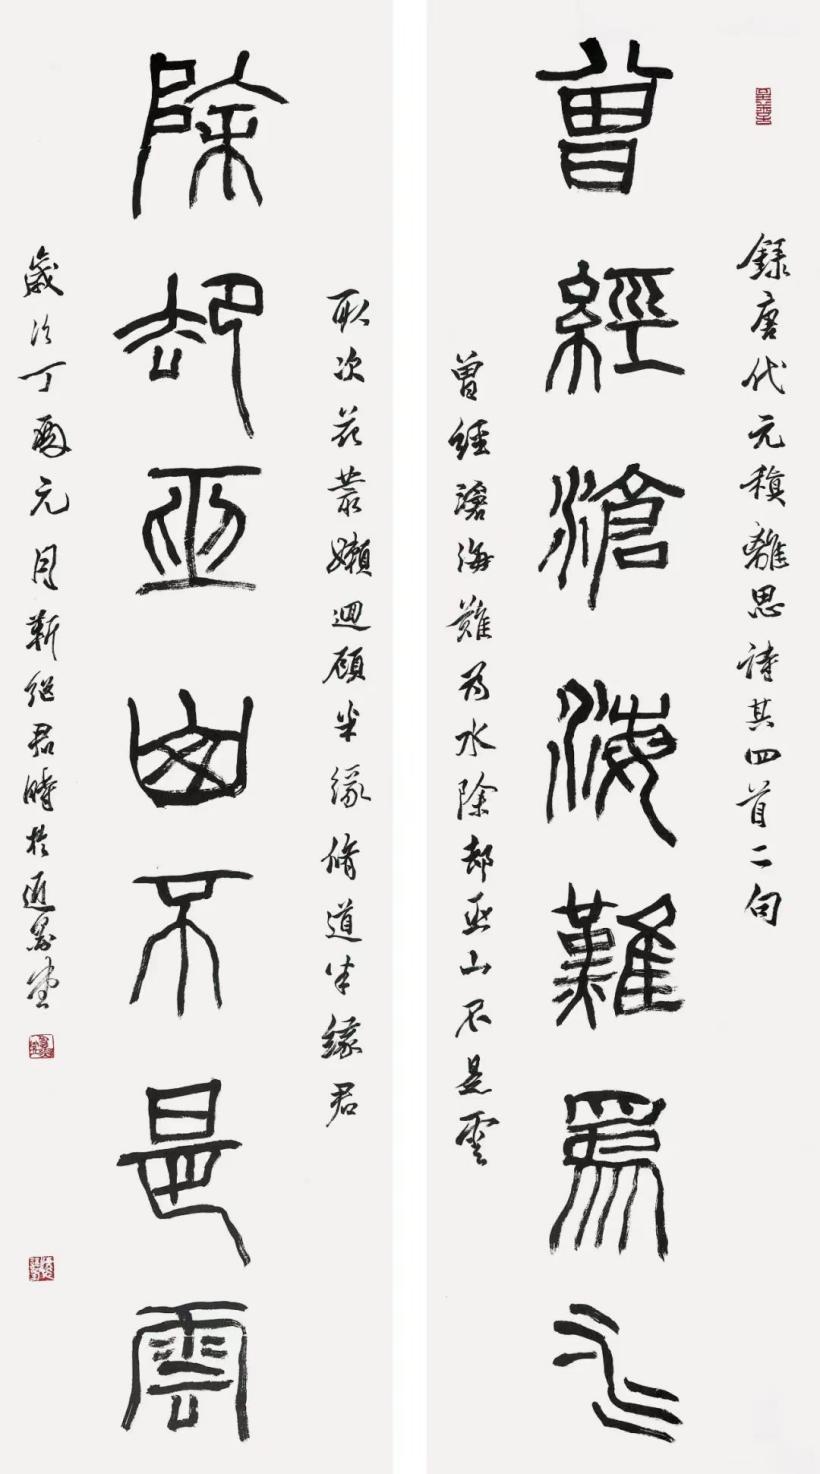 錄唐代元稹離思詩其四首二句
曾經滄海難爲水
曾經滄海難为水除却巫山不是雲
取次花叢嬾迴顧半緣脩道半緣君
除却巫山不是雲
歲次丁酉元月靳继君時於堂